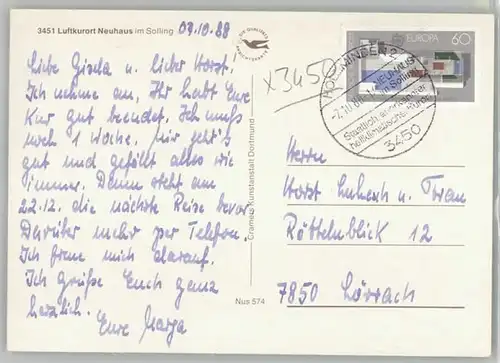 3451 Luftkurort Neuhaus im Solling
03.10.88
Liebe Gisela u. lieber Horst!
Ich nehme an, Ihr habt Eure
Kur gut beendet. Ich muß
noch 1 Woche. Mir geht's
gut und gefällt alles wie
immer. Dann steht am
22.12. die nächste Reise bevor
Darüber mehr per Telefon.
Ich freue mich darauf.
Ich grüße Euch ganz
herzlich.
Eure Marga
Nus 574
Cramers Kunstanstalt Dortmund
x3450
EUROPA 60
HOLZMINDEN 2
NEUHAUS
im Solling
Staatlich anerkannter
heilklimatischer Kurort
3450
Herrn
Horst u. Frau
Röttelnblick 12
7850 Lörrach